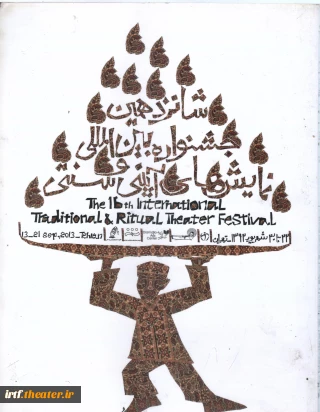 شانزدهمین
جشنواره بین المللی
نمایش‌های آیینی و سنتی
The 16th International
Traditional & Ritual Theater Festival
13_21 Sep,2013_Tehran
۲۲ تا ۳۰ شهریور ۱۳۹۲_تهران
irtf.theater.ir